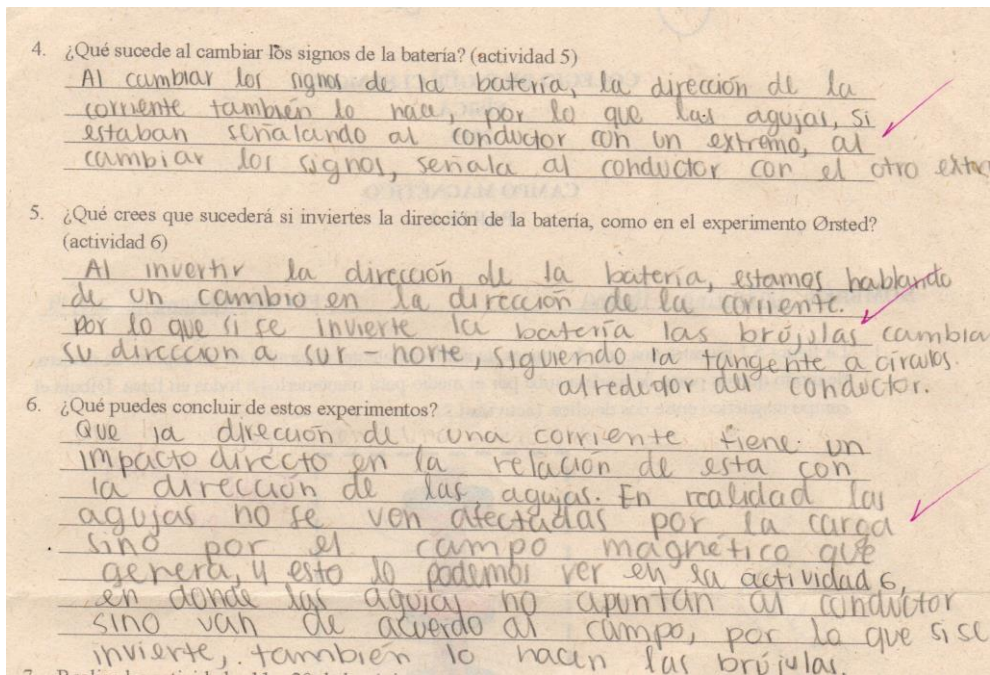 4. ¿Qué sucede al cambiar los signos de la batería? (actividad 5)
Al cambiar los signos de la batería, la dirección de la
corriente también lo hace, por lo que las agujas, si
estaban señalando al conductor con un extremo, al
cambiar los signos, señala al conductor con el otro extre
5. ¿Qué crees que sucederá si inviertes la dirección de la batería, como en el experimento Ørsted?
(actividad 6)
Al invertir la dirección de la batería, estamos hablando
de un cambio en la dirección de la corriente.
por lo que si se invierte la batería las brújulas cambia
su dirección a sur norte, siguiendo la tangente a círculos.
alrededor del conductor.
6. ¿Qué puedes concluir de estos experimentos?
Que la dirección de una corriente tiene un
impacto directo en la relación de esta con
la dirección de las agujas. En realidad las
agujas no se ven afectadas por la carga
sino por el campo magnético que
genera, y esto lo podemos ver en la actividad 6,
en donde las agujas no apuntan al conductor
sino van de acuerdo al campo, por lo que si se
invierte, también lo hacen las brújulas.